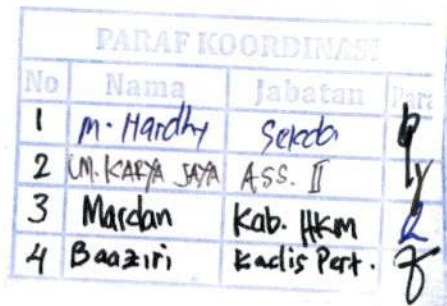 PARAF KOORDINASI
No Nama Jabatan Para
1 M. Hardhy Sekda
2 LM. KARYA JAYA ASS. II
3 Mardan Kab. HKM
4 Baaziri Kadis Pert.